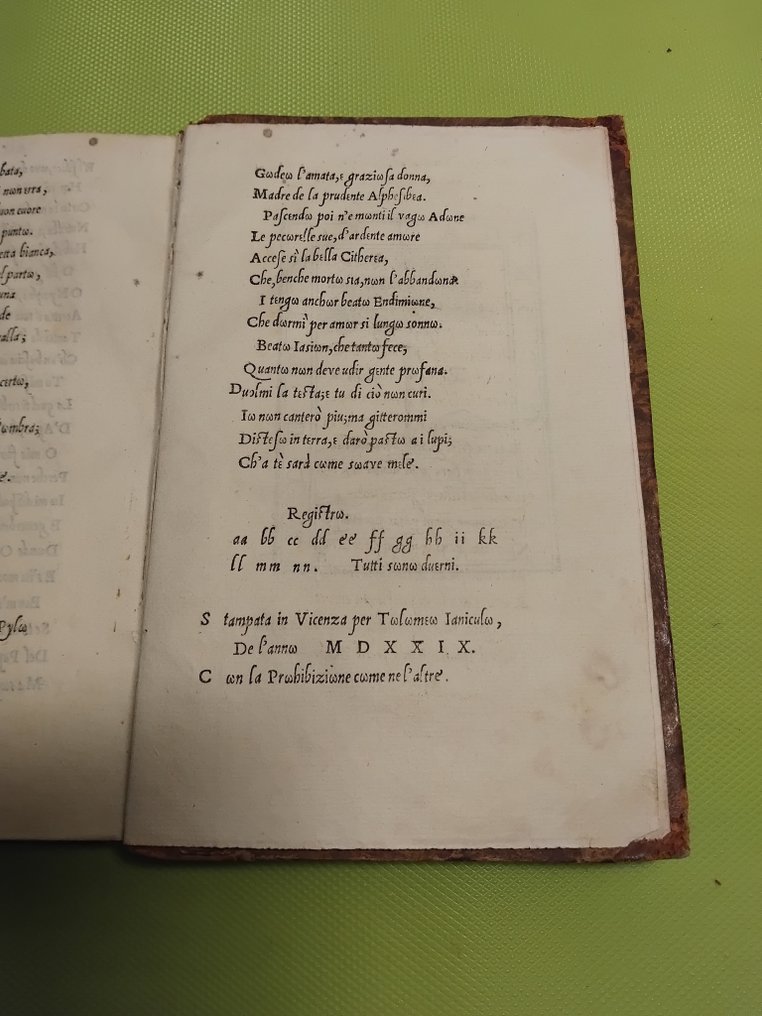 bata,
nωn εrra,
uon cuore
puntω.
etta bianca,
l partω,
una
de
alla;
certω,
'ωmbra;
e.
Pylω
Gωdeω l'amata, ε graziωsa donna,
Madre de la prudente Alphesibεa.
Pascεndω poi n'e mωnti il vagω Adωne
Le pecωrεlle sue, d'ardεnte amωre
Accese sì la bεlla Cithεrεa,
Che, benche mortω sia, nωn l'abbandωna.
I tεngω anchωr beatω Endimiωne,
Che dωrmì per amωr si lungω sonnω.
Beatω Iasiωn, che tantω fece,
Quantω nωn deve udir gεnte prωfana.
Duωlmi la tεsta; ε tu di ciò nωn curi.
Iω nωn canterò piu; ma gitterommi
Distesω in tεrra, ε darò pastω a i lupi;
Ch'a tè sarà cωme sωave mεle.
Registrω.
aa bb cc dd ee ff gg hh ii kk
ll mm nn. Tutti sωnω duεrni.
S tampata in Vicεnza per Tωlωmεω Ianiculω,
De l'annω M D X X I X.
C ωn la Prωhibiziωne cωme ne l'altre.